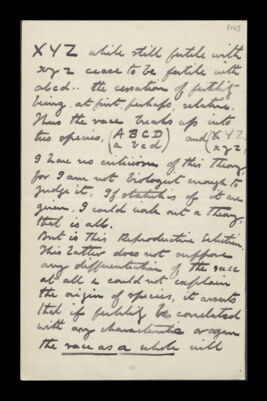 F145
XYZ while still fertile with
xyz cease to be fertile with
abcd.. the cessation of fertility
being, at first, perhaps, relative.
Thus the race breaks up into
two species, (ABCD and (XYZ
abcd) xyz)
I have no criticisms of this theory,
for I am not biologist enough to
judge it. If statistics of it are
given, I could work out a theory,
that is all.
But is this Reproductive Selection.
This latter does not suppose
any differentiation of the race
at all & could not explain
the origin of species, it asserts
that if fertility be correlated
with any characteristic or organ
the race as a whole will